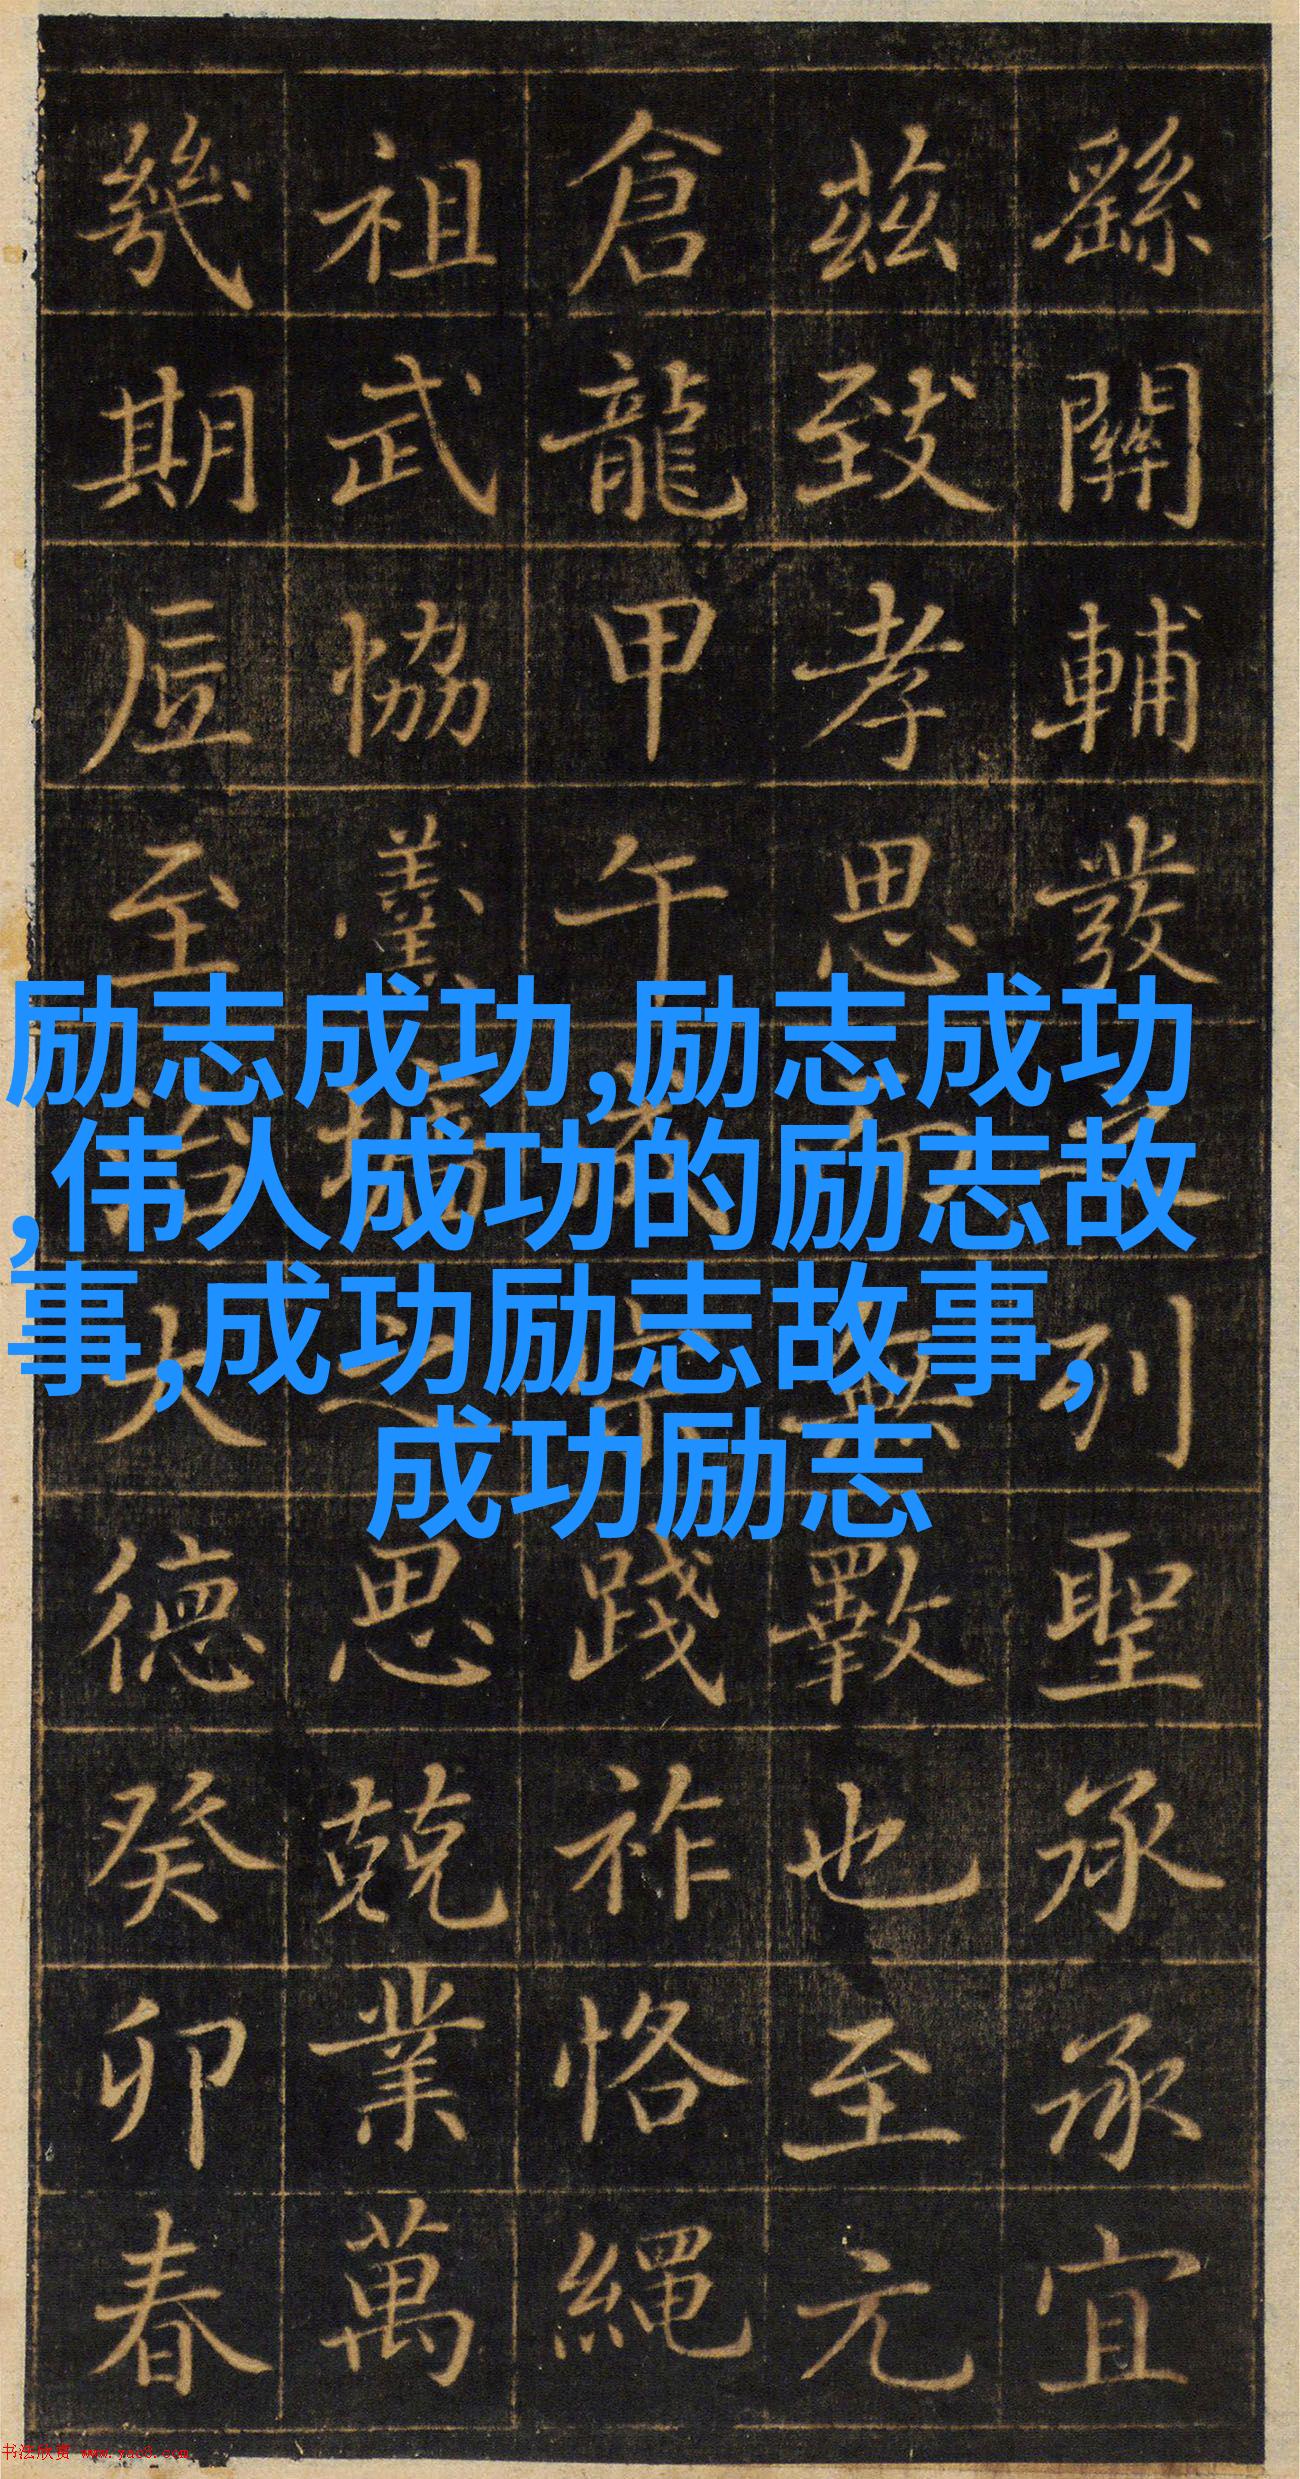 励志成功,励志成功
,伟人成功的励志故
事,成功励志故事,
成功励志
繇關輔發列聖承承宜
茲致孝思無斁也至元
倉龍甲午踐祚恪繩
祖武恊羹墻之思兢業萬
幾期底至治大德癸卯春
书法欣赏 www.yac8.com